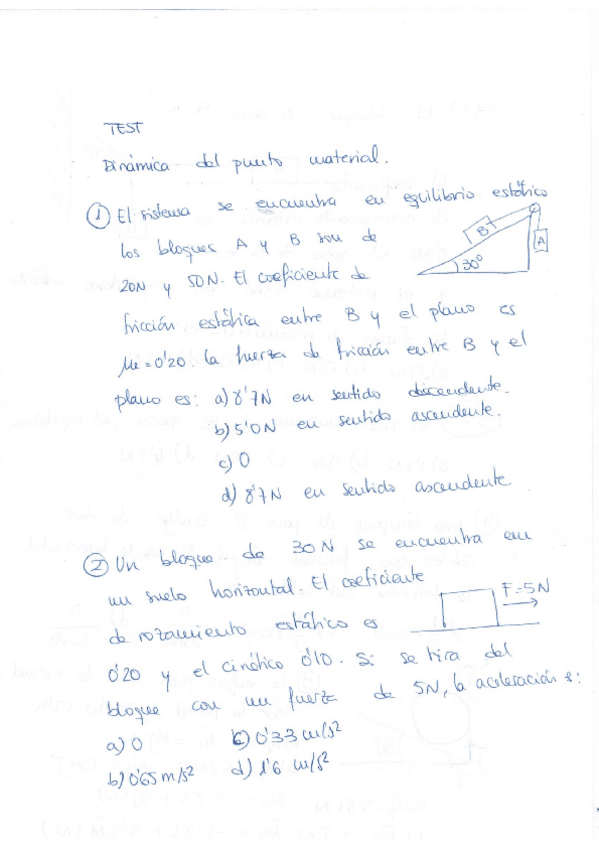 TEST
Dinámica del punto material.
① El sistema se encuentra en equilibrio estático
los bloques A y B son de
20N y 50N. El coeficiente de
fricción estática entre B y el plano es
μe = 0'20. La fuerza de fricción entre B y el
plano es: a) 8'7N en sentido descendente.
b) 5'0N en sentido ascendente.
c) 0
d) 8'7N en sentido ascendente
B
A
30°
② Un bloque de 30N se encuentra en
un suelo horizontal. El coeficiente
de rozamiento estático es
0'20 y el cinético 0'10. Si se tira del
bloque con un fuerza de 5N, la aceleración e:
F=5N
a) 0 c) 0'33 m/s²
b) 0'65 m/s² d) 1'6 m/s²